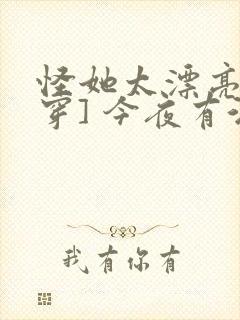 怪她太漂亮
穿]今夜有
我有你有